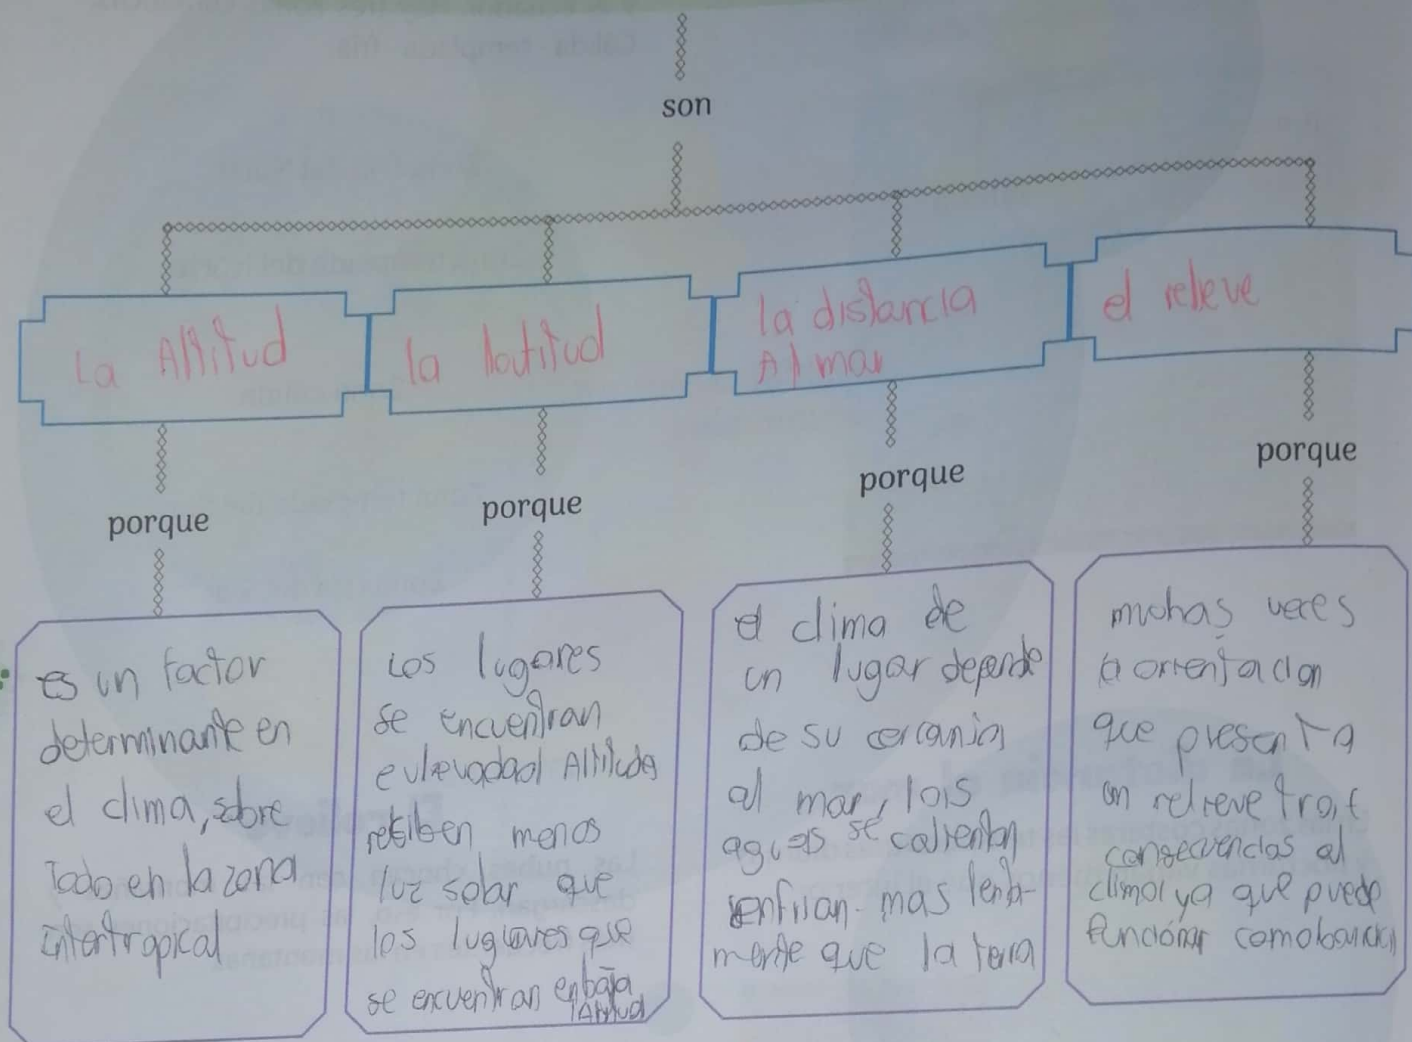 son
La Altitud
la latitud
la distancia
Al mar
el relieve
porque
porque
porque
porque
es un factor
determinante en
el clima, sobre
Todo en la zona
intertropical
Los lugares
se encuentran
reciben menos
luz solar que
los lugares que
se encuentran en baja
el clima de
un lugar depende
de su cercania
al mar, las
aguas se calientan
enfrian mas lenta-
mente que la terra
muchas veces
la orientacion
que presenta
un relieve trae
consecuencias al
clima ya que puede
funcionar como